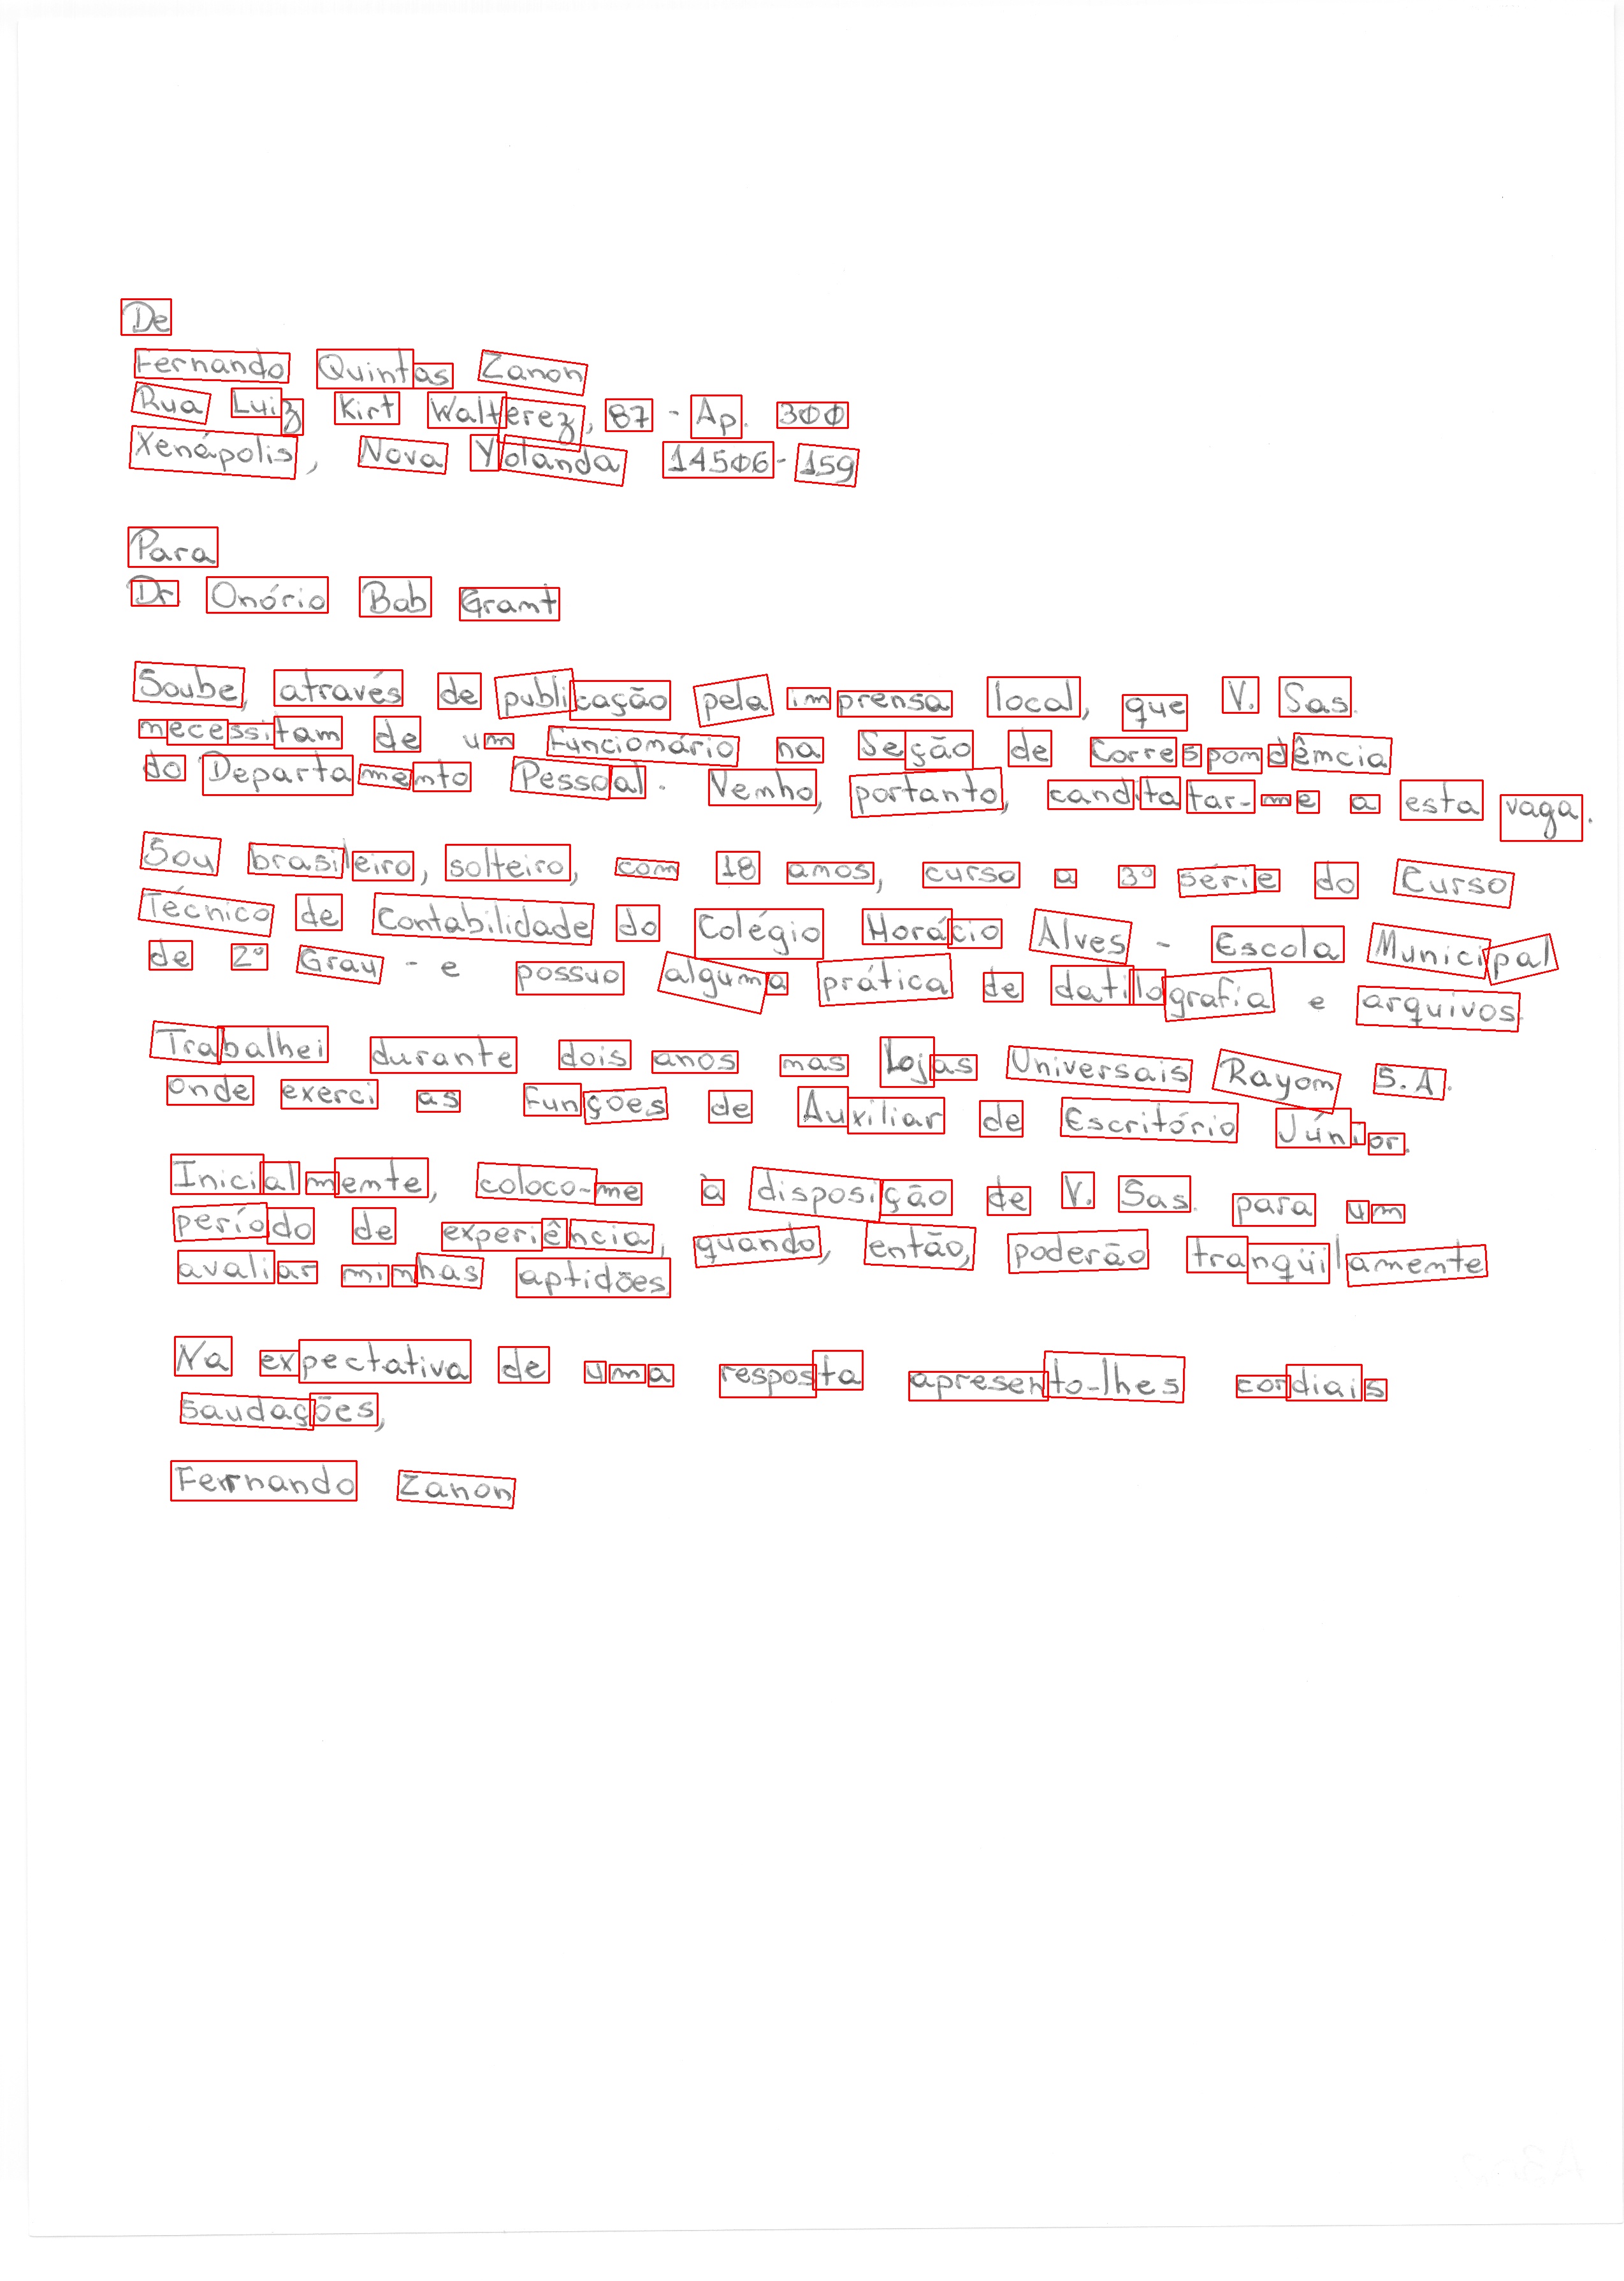 De
Fernando Quintas Zanon
Rua Luiz Kirt Walterez, 87 - Ap. 300
Xenápolis, Nova Yolanda 14506-159
Para
Dr. Onório Bob Grant
Soube, através de publicação pela imprensa local, que V. Sas.
necessitam de um funcionário na Seção de Correspondência
do Departamento Pessoal. Venho, portanto, canditatar-me a esta vaga.
Sou brasileiro, solteiro, com 18 anos, curso a 3º série do Curso
Técnico de Contabilidade do Colégio Horácio Alves - Escola Municipal
de 2º Grau - e possuo alguma prática de datilografia e arquivos.
Trabalhei durante dois anos nas Lojas Universais Rayom S.A.
Onde exerci as funções de Auxiliar de Escritório Júnior.
Inicialmente, coloco-me à disposição de V. Sas. para um
período de experiência, quando, então, poderão tranqüilamente
avaliar minhas aptidões.
Na expectativa de uma resposta apresento-lhes cordiais
saudações,
Fernando Zanon